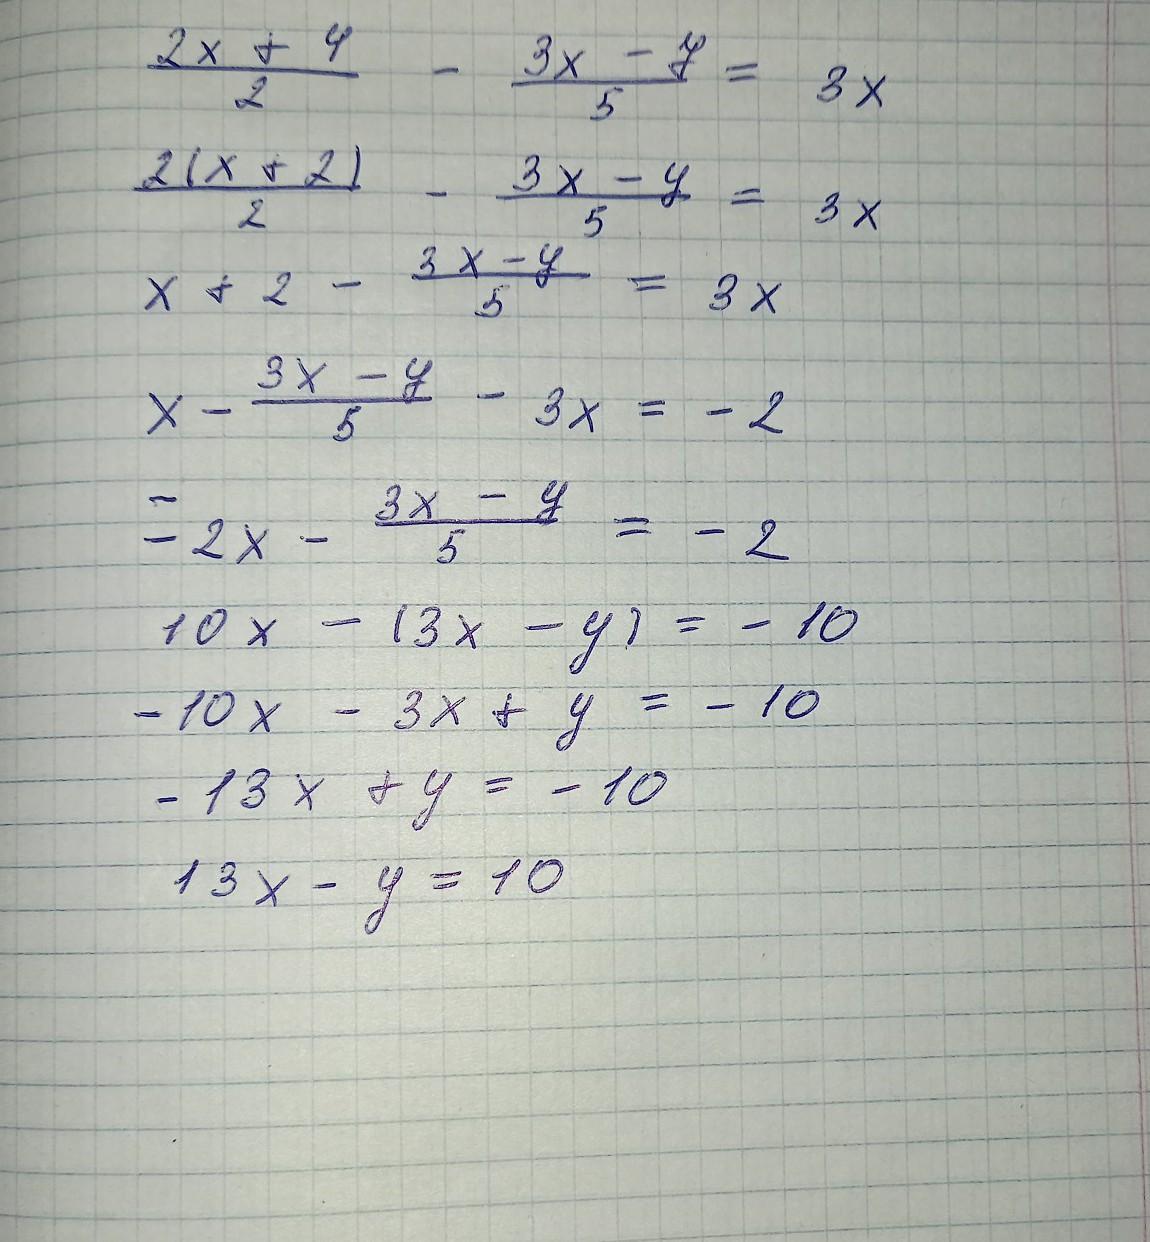 (2x + 4)/2 - (3x - y)/5 = 3x
2(x + 2)/2 - (3x - y)/5 = 3x
x + 2 - (3x - y)/5 = 3x
x - (3x - y)/5 - 3x = -2
- -2x - (3x - y)/5 = -2
10x - (3x - y) = -10
-10x - 3x + y = -10
-13x + y = -10
13x - y = 10